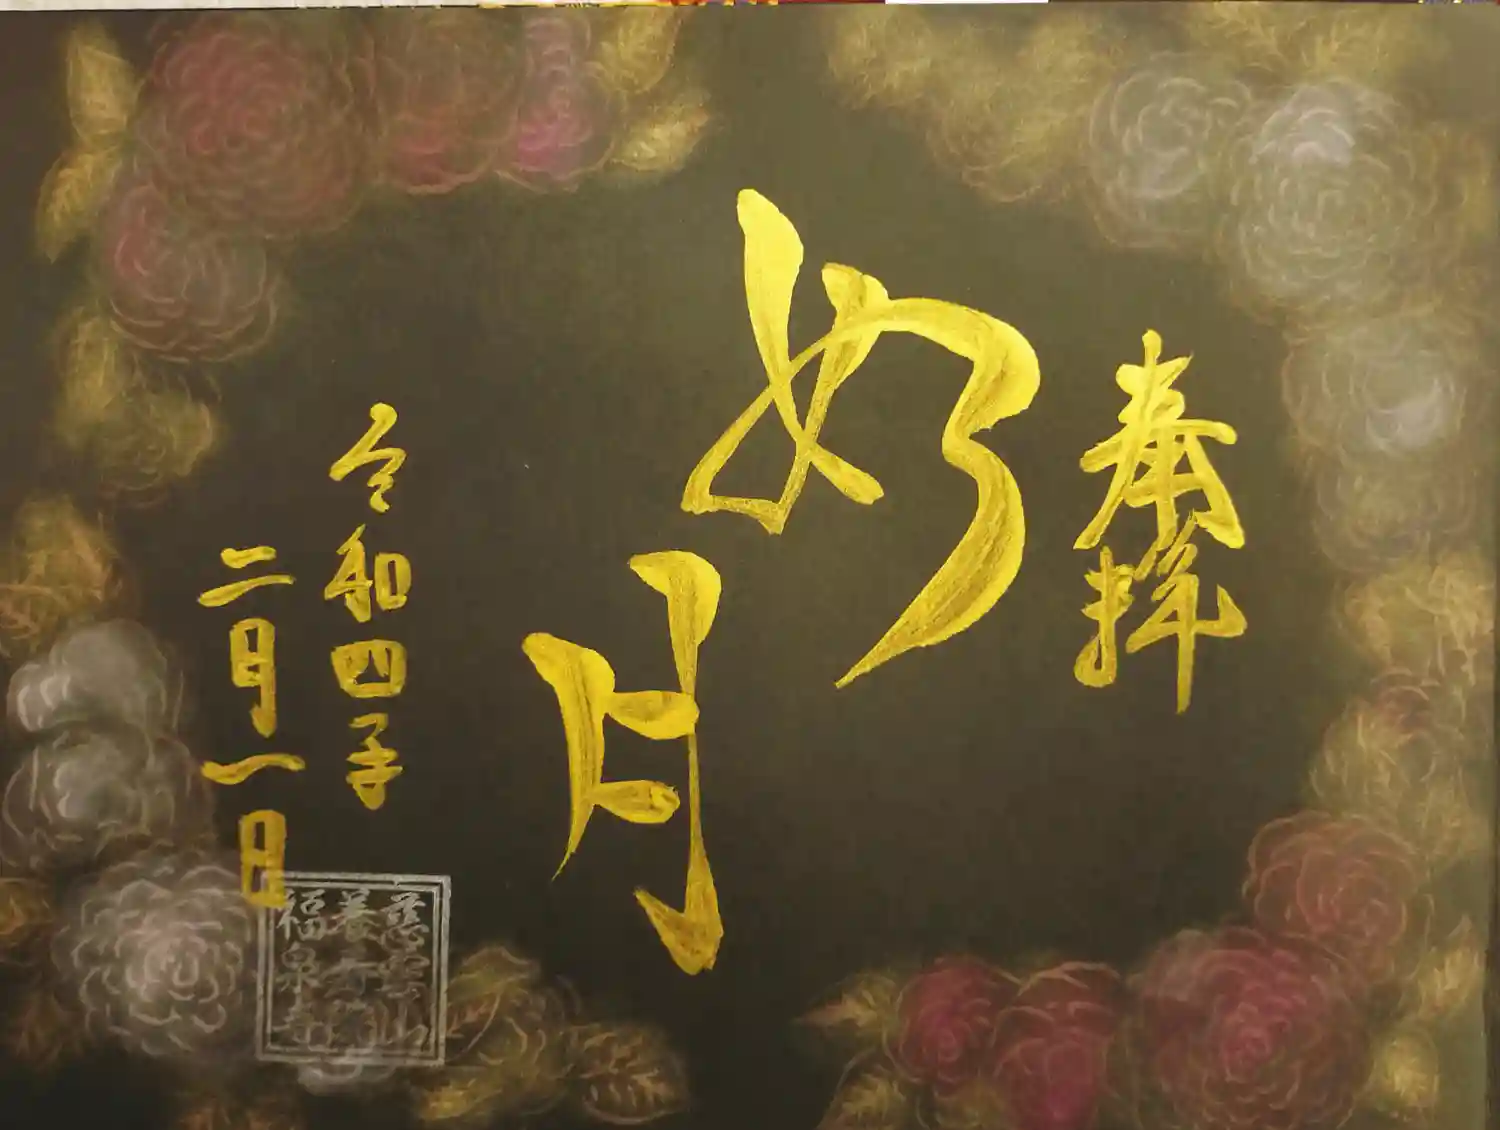 奉拝
如月
令和四年
二月一日
慈雲山
養寿院
福泉寺